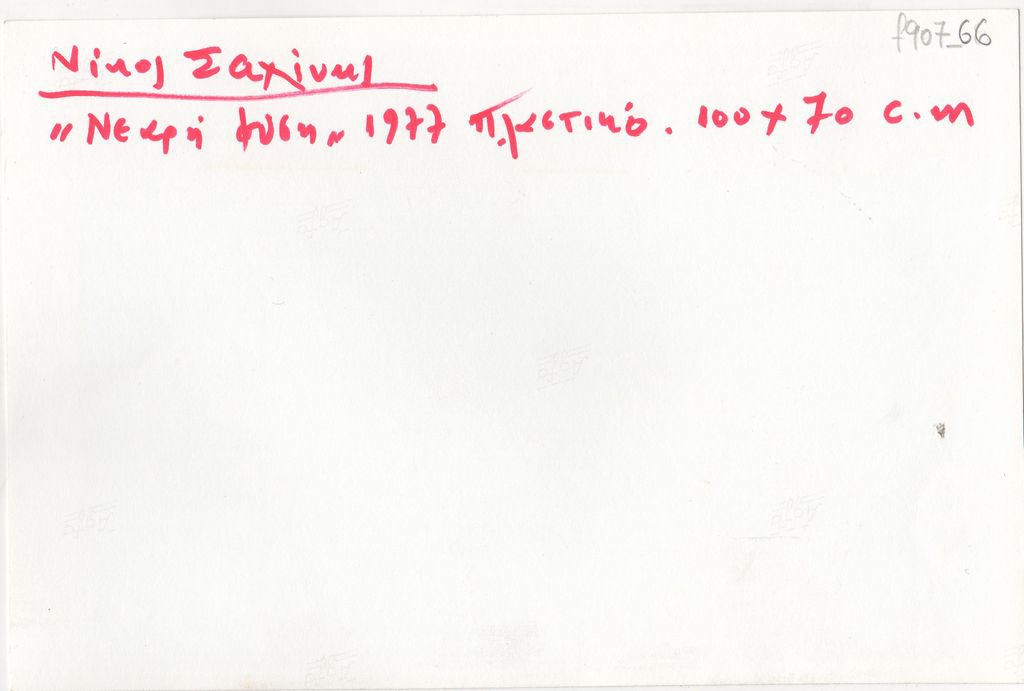 f907_66
Νίκος Σαχίνης
„Νεκρή φύση„ 1977 Πλαστικό. 100 x 70 c.m